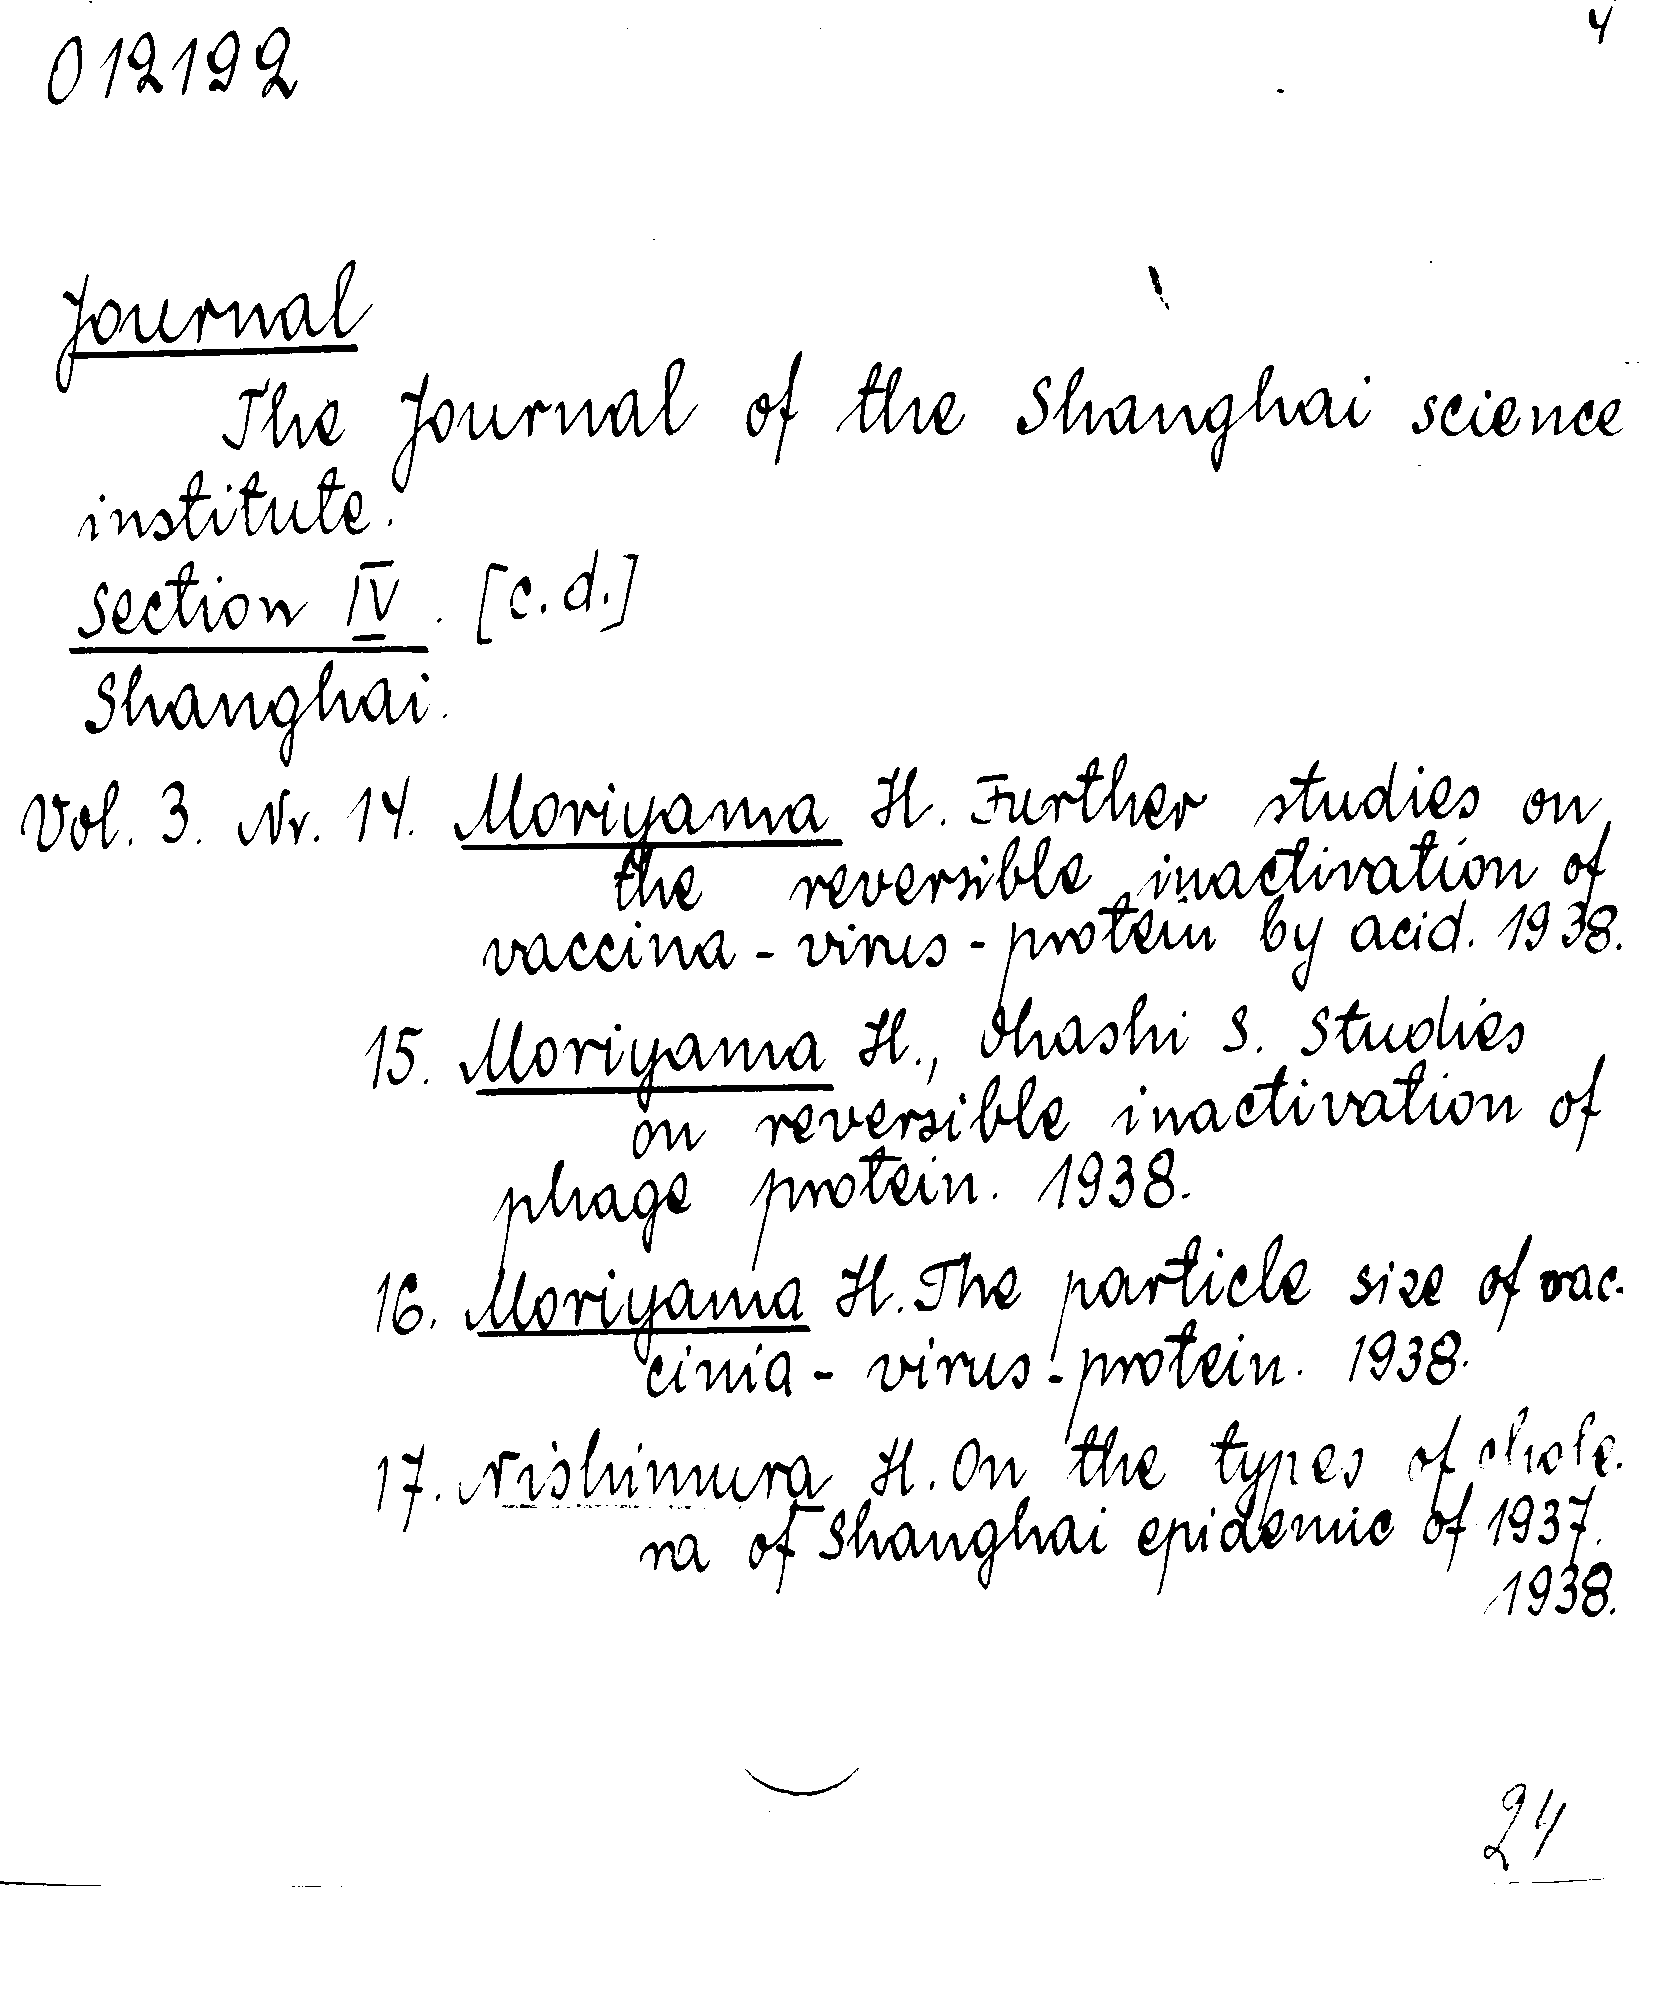 4
012192
Journal
The Journal of the Shanghai science
institute.
Section IV. [c.d.]
Shanghai.
Vol. 3. Nr. 14. Moriyama H. Further studies on
the reversible inactivation of
vaccina-virus-protein by acid. 1938.
15. Moriyama H., Ohashi S. Studies
on reversible inactivation of
phage protein. 1938.
16. Moriyama H. The particle size of vac-
cinia-virus-protein. 1938.
17. Nishimura H. On the types of chole-
ra of Shanghai epidemic of 1937.
1938.
24